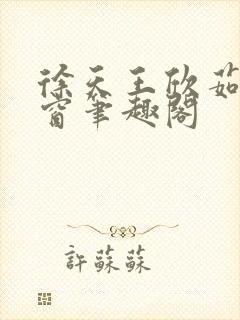 徐天王欣茹
窗筆趣閣
許蘇蘇